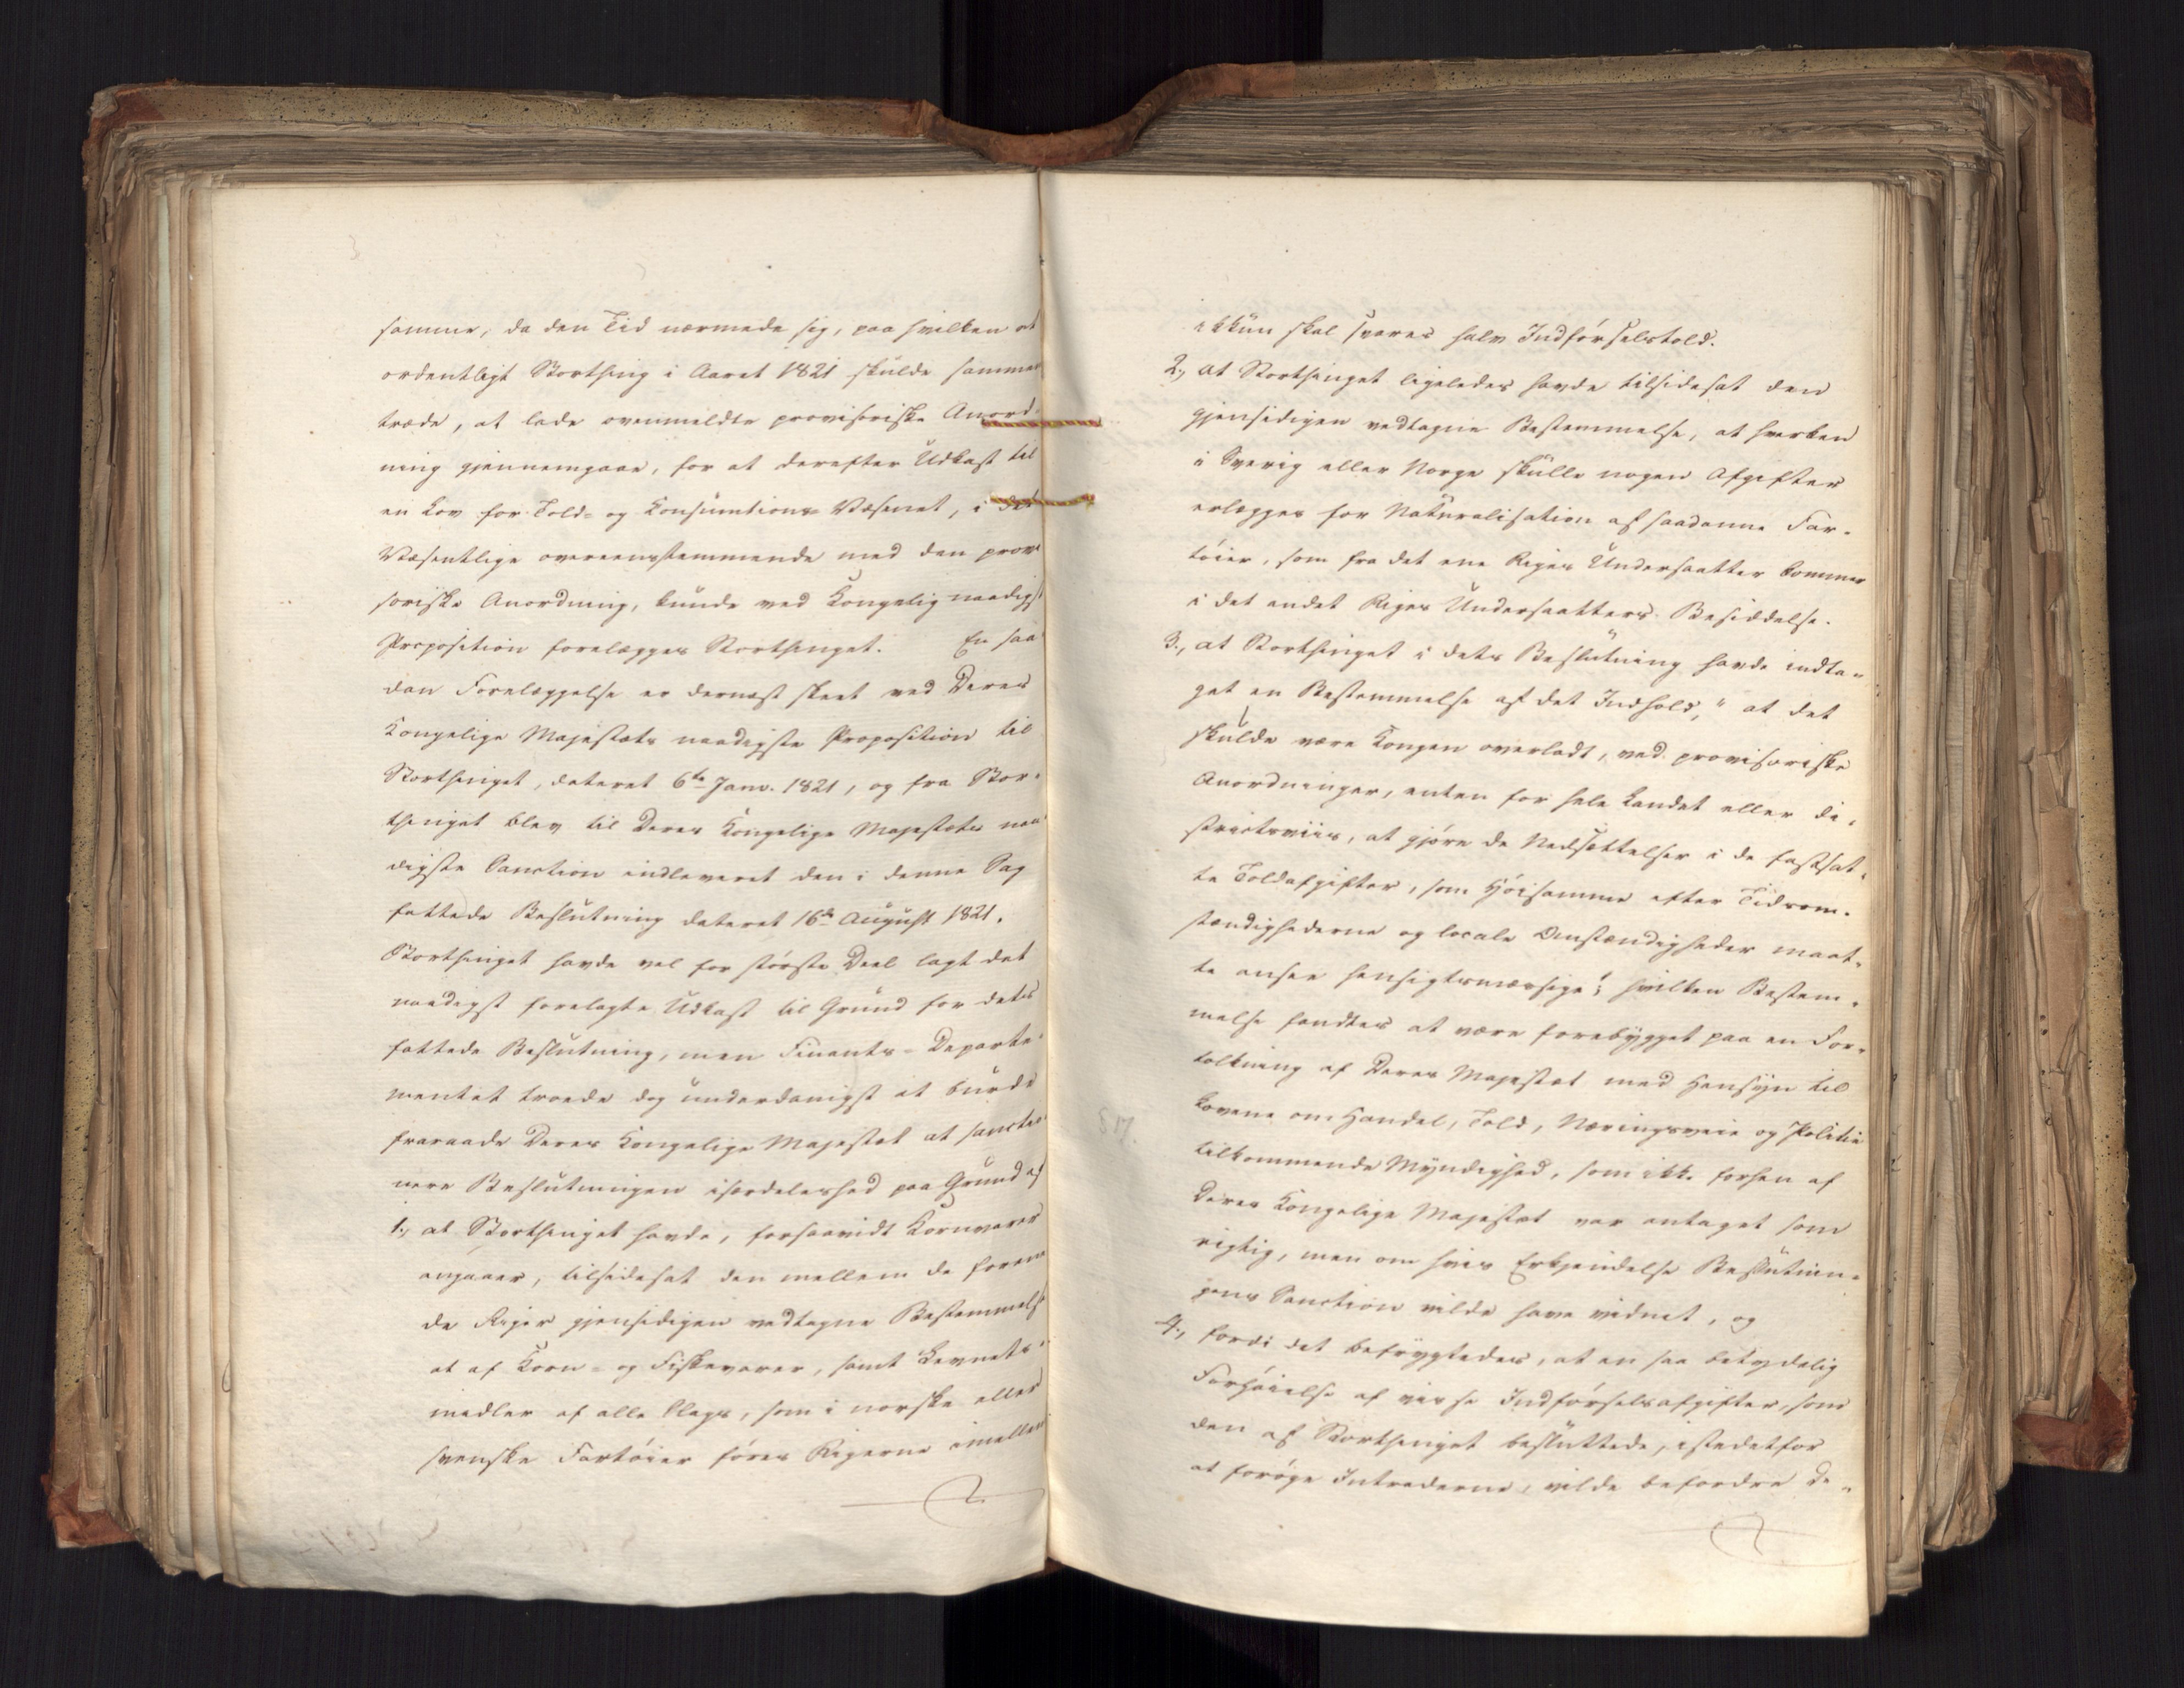 somme, da den Tid nærmede sig, paa hvilken et
ordentligt Storthing i Aaret 1821 skulde sammen
træde, at lade ovenmeldte provisoriske Anord-
ning gjennemgaae, for at derefter Udkast til
en Lov for Told- og Consumtions-Væsenet, i det
Væsentlige overeensstemmende med den provi
soriske Anordning, kunde ved Kongelig naadigst
Proposition forelægges Storthinget. En saa
dan Forelæggelse er dernæst skeet ved Deres
Kongelige Majestæts naadigste Proposition til
Storthinget, dateret 6te Janv. 1821, og fra Stor-
thinget blev til Deres Kongelige Majestæts naa
digste Sanction indleveret den i denne Sag
fattede Beslutning dateret 16de August 1821.
Storthinget havde vel for største Deel lagt det
naadigst forelagte Udkast til Grund for dets
fattede Beslutning, men Finants-Departe-
mentet troede dog underdanigst at burde
fraraade Deres Kongelige Majestæt at sanctio-
nere Beslutningen isærdeleshed paa Grund af
1., at Storthinget havde, forsaavidt Kornvarer
angaaer, tilsidesat den mellem de foreene
de Riger gjensidigen vedtagne Bestemmelse
at af Korn- og Fiskevarer, samt Levnets-
midler af alle Slags, som i norske eller
svenske Fartøier føres Rigerne imellem
ikkun skal svares halv Indførselstold.
2., at Storthinget ligeledes havde tilsidesat den
gjensidigen vedtagne Bestemmelse, at hverken
i Sverig eller Norge skulle nogen Afgifter
erlægges for Naturalisation af saadanne Far-
tøier, som fra det ene Riges Undersaatter kommer
i det andet Riges Undersaatters Besiddelse.
3., at Storthinget i dets Beslutning havde indta-
get en Bestemmelse af det Indhold, "at det
skulde være Kongen overladt, ved provisoriske
Anordninger, enten for hele Landet eller di-
strictsviis, at gjøre de Nedsættelser i de fastsat-
te Toldafgifter, som Høisamme efter Tidsom-
stændighederne og locale Omstændigheder maat-
te ansee hensigtsmæssige"; hvilken Bestem-
melse fandtes at være forebygget paa en For-
tolkning af Deres Majestæt med Hensyn til
Lovene om Handel, Told, Næringsveie og Politie
tilkommende Myndighed, som ikke forhen af
Deres Kongelige Majestæt var antaget som
rigtig, men om hvis Erkjendelse Beslutnin-
gens Sanction vilde have vidnet, og
4., fordi det befrygtedes, at en saa betydelig
Forhøielse af visse Indførselsafgifter, som
den af Storthinget besluttede, istedetfor
at forøge Intraderne, vilde befordre De-
§ 17.